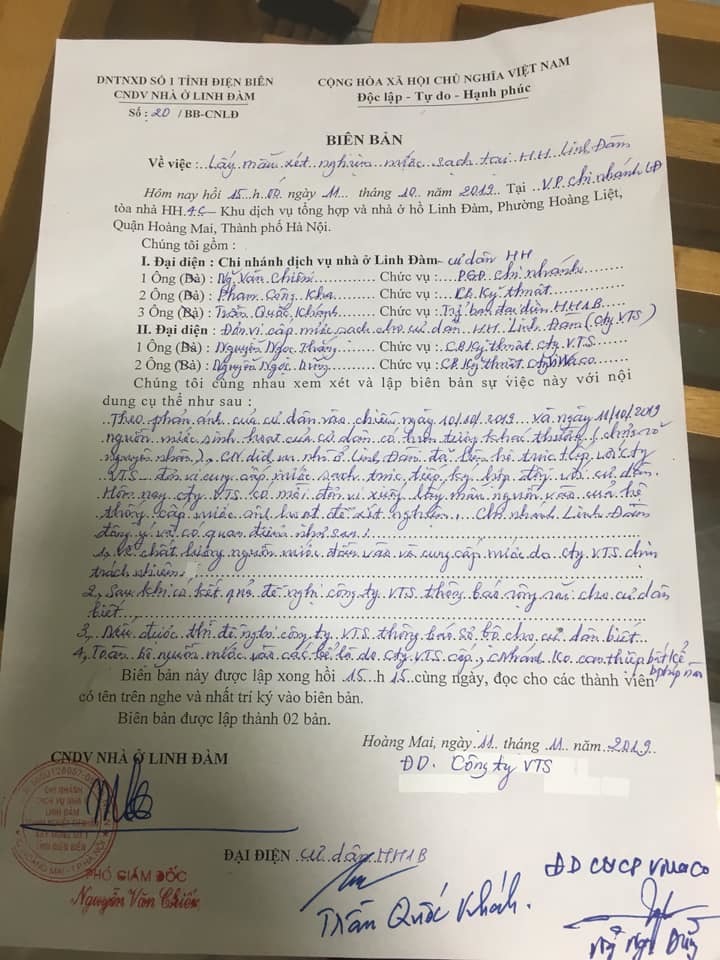 DNTNXD SỐ 1 TỈNH ĐIỆN BIÊN
CNDV NHÀ Ở LINH ĐÀM
Số : 20 / BB-CNLĐ
CỘNG HÒA XÃ HỘI CHỦ NGHĨA VIỆT NAM
Độc lập - Tự do - Hạnh phúc
BIÊN BẢN
Về việc : Lấy mẫu xét nghiệm nước sạch tại HH Linh Đàm
Hôm nay hồi 15 h 00 ngày 11 tháng 10 năm 2019 Tại V.P chi nhánh LĐ
tòa nhà HH 4C – Khu dịch vụ tổng hợp và nhà ở hồ Linh Đàm, Phường Hoàng Liệt,
Quận Hoàng Mai, Thành phố Hà Nội.
Chúng tôi gồm :
I. Đại diện : Chi nhánh dịch vụ nhà ở Linh Đàm - cư dân HH
1 Ông (Bà) : Ng Văn Chiến Chức vụ : PGĐ chi nhánh
2 Ông (Bà) : Phạm Công Kha Chức vụ : CB Kỹ thuật
3 Ông (Bà) : Trần Quốc Khánh Chức vụ : Trg ban đại diện HH1B
II. Đại diện : Đơn vị cấp nước sạch cho cư dân HH Linh Đàm (Cty VTS)
1 Ông (Bà) : Nguyễn Ngọc Thắng Chức vụ : CB Kỹ thuật cty VTS
2 Ông (Bà) : Nguyễn Ngọc Chức vụ : CB Kỹ thuật
Chúng tôi cùng nhau xem xét và lập biên bản sự việc này với nội
dung cụ thể như sau :
Theo phản ánh của cư dân vào chiều ngày 10/10/2019 và ngày 11/10/2019
nguồn nước sinh hoạt của cư dân có hiện tượng khác thường ( chưa rõ
nguyên nhân ), CN dịch vụ nhà ở Linh Đàm đã liên hệ trực tiếp với cty
VTS đơn vị cung cấp nước sạch trực tiếp ký hợp đồng với cư dân.
Hôm nay cty VTS có mời đơn vị xuống lấy mẫu nguồn vào của hệ
thống cấp nước sinh hoạt để xét nghiệm, Chi nhánh Linh Đàm
đồng ý và có quan điểm như sau :
1, Về chất lượng nguồn nước đầu vào và cung cấp nước do cty VTS chịu
trách nhiệm
2, Sau khi có kết quả đề nghị công ty VTS thông báo rộng rãi cho cư dân
biết
3, Nếu được thì đề nghị công ty VTS thông báo sơ bộ cho cư dân biết
4, Toàn bộ nguồn nước vào các bể là do cty VTS cấp, c nhánh ko can thiệp bất kể
Biên bản này được lập xong hồi 15 h 15 cùng ngày, đọc cho các thành viên
có tên trên nghe và nhất trí ký vào biên bản.
Biên bản được lập thành 02 bản.
Hoàng Mai, ngày 11 tháng 11 năm 2019
CNDV NHÀ Ở LINH ĐÀM
ĐD. Công ty VTS
CHI NHÁNH
DỊCH VỤ NHÀ Ở
LINH ĐÀM
PHÓ GIÁM ĐỐC
Nguyễn Văn Chiến
ĐẠI DIỆN cư dân HH1B
Trần Quốc Khánh.
ĐD CTCP Viwaco